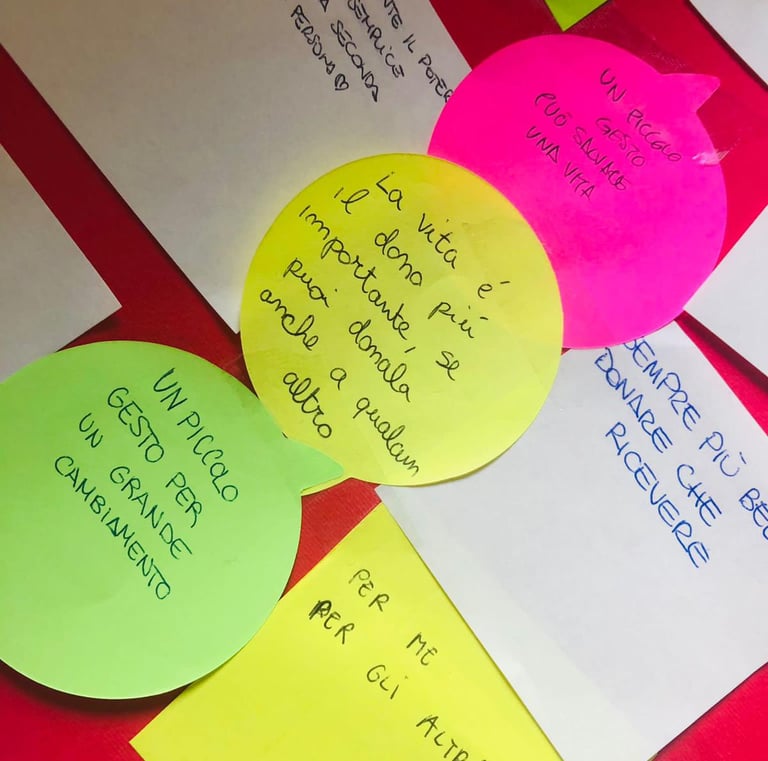 NTE IL POTER
SEMPLICE
A SECONDA
PERSONA♡
UN PICCOLO
GESTO
PUÒ SALVARE
UNA VITA
La vita é
il dono più
importante, se
puoi donala
anche a qualcun
altro
UN PICCOLO
GESTO PER
UN GRANDE
CAMBIAMENTO
SEMPRE PIÙ BEL
DONARE CHE
RICEVERE
PER ME
PER GLI ALTR